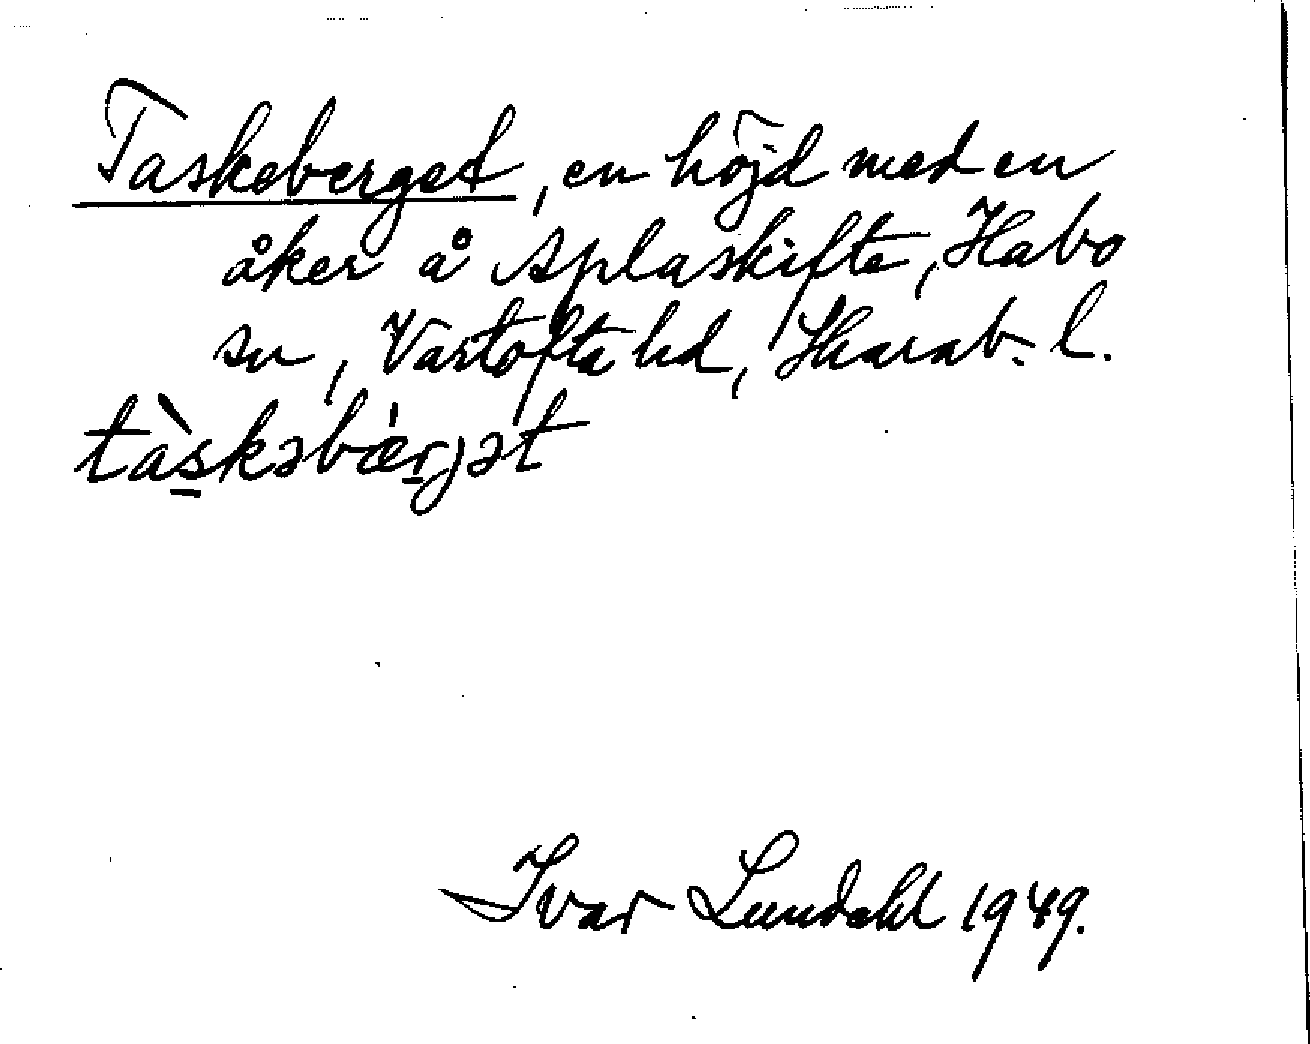 Taskeberget, en höjd med en
åker å Aplaskifte, Habo
sn, Vartofta hd, Skarab. l.
tàskəbæ̀rjət
Ivar Lundahl 1949.